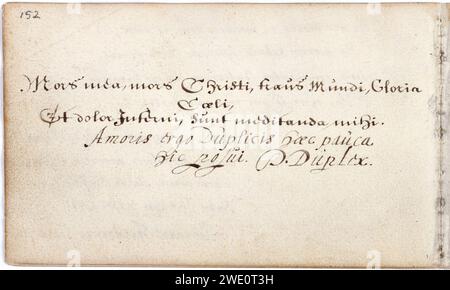 152
Mors mea, mors Christi, fraus Mundi, Gloria
Cœli,
Et dolor Inferni, Sunt meditanda mihi.
Amoris ergo Duplicis hæc pauca
hic posui. P. Duplex.
alamy
Image ID: 2WE0T3H
www.alamy.com